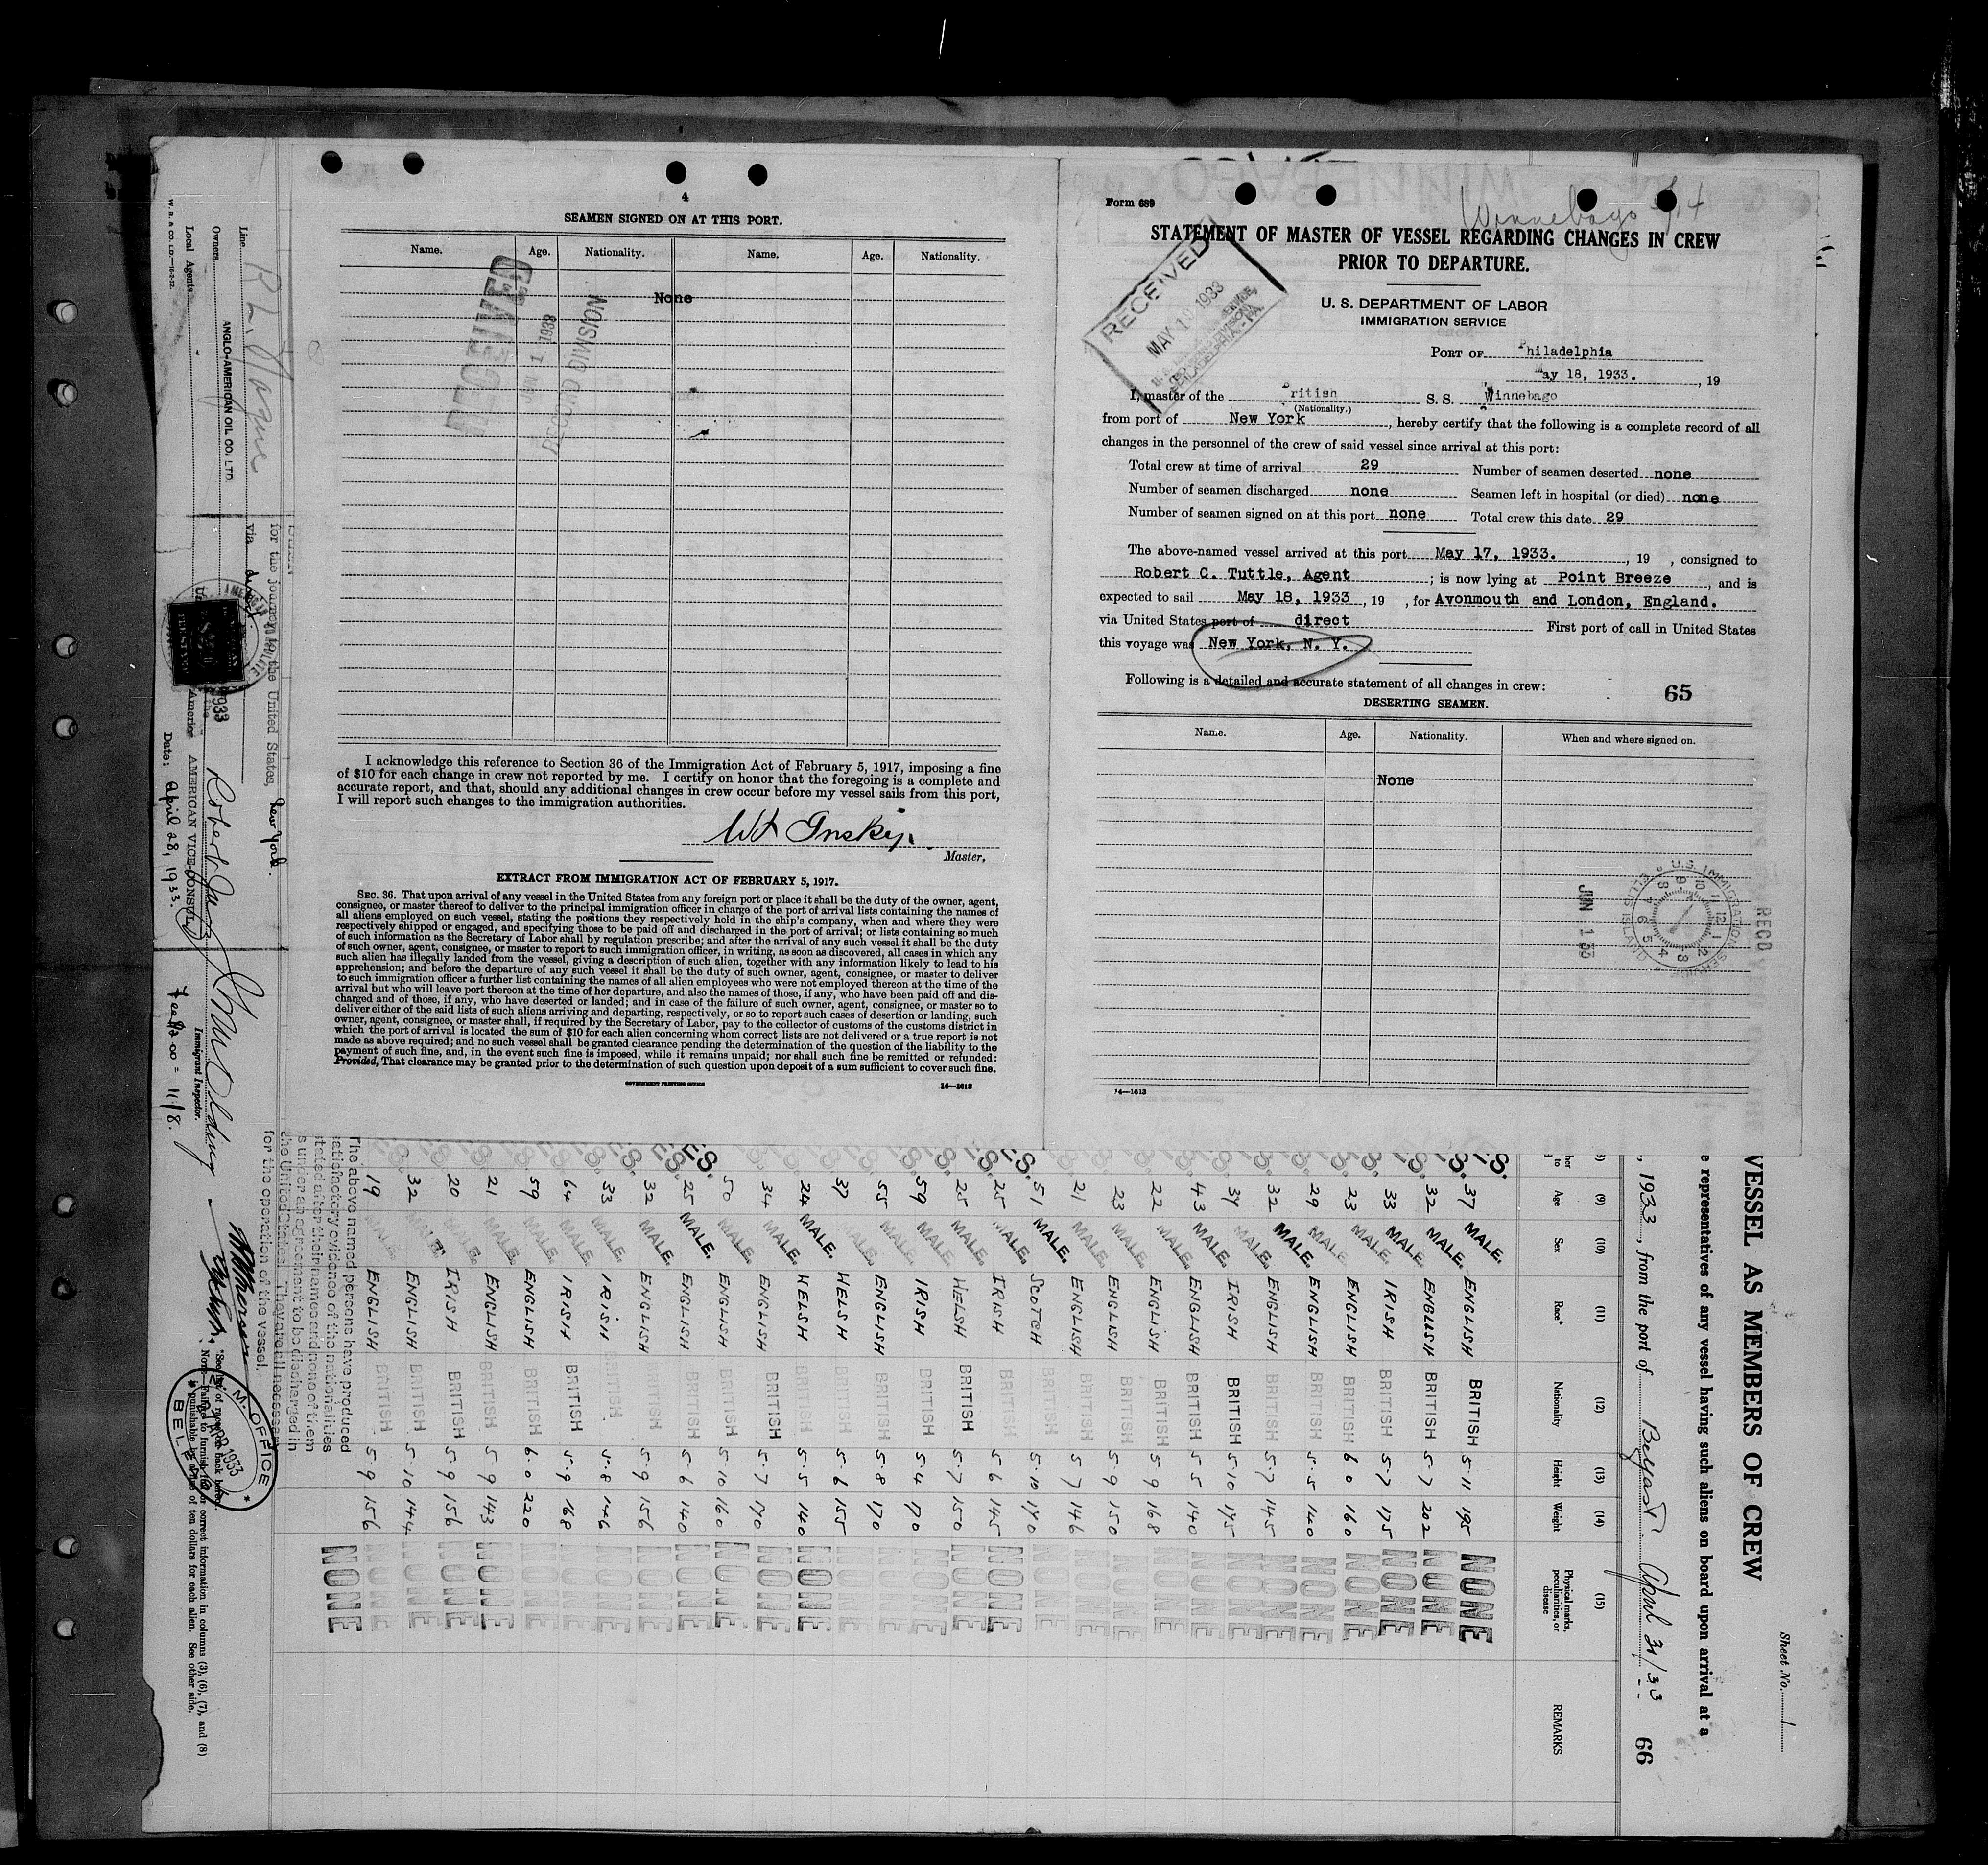 4
SEAMEN SIGNED ON AT THIS PORT.
Name. Age. Nationality. Name. Age. Nationality.
None
RECEIVED
JUN 1 1933
RECORD DIVISION
I acknowledge this reference to Section 36 of the Immigration Act of February 5, 1917, imposing a fine
of $10 for each change in crew not reported by me. I certify on honor that the foregoing is a complete and
accurate report, and that, should any additional changes in crew occur before my vessel sails from this port,
I will report such changes to the immigration authorities.
Master.
EXTRACT FROM IMMIGRATION ACT OF FEBRUARY 5, 1917.
SEC. 36. That upon arrival of any vessel in the United States from any foreign port or place it shall be the duty of the owner, agent,
consignee, or master thereof to deliver to the principal immigration officer in charge of the port of arrival lists containing the names of
all aliens employed on such vessel, stating the positions they respectively hold in the ship's company, when and where they were
respectively shipped or engaged, and specifying those to be paid off and discharged in the port of arrival; or lists containing so much
of such information as the Secretary of Labor shall by regulation prescribe; and after the arrival of any such vessel it shall be the duty
of such owner, agent, consignee, or master to report to such immigration officer, in writing, as soon as discovered, all cases in which any
such alien has illegally landed from the vessel, giving a description of such alien, together with any information likely to lead to his
apprehension; and before the departure of any such vessel it shall be the duty of such owner, agent, consignee, or master to deliver
to such immigration officer a further list containing the names of all alien employees who were not employed thereon at the time of the
arrival but who will leave port thereon at the time of her departure, and also the names of those, if any, who have been paid off and dis-
charged and of those, if any, who have deserted or landed; and in case of the failure of such owner, agent, consignee, or master so to
deliver either of the said lists of such aliens arriving and departing, respectively, or so to report such cases of desertion or landing, such
owner, agent, consignee, or master shall, if required by the Secretary of Labor, pay to the collector of customs of the customs district in
which the port of arrival is located the sum of $10 for each alien concerning whom correct lists are not delivered or a true report is not
made as above required; and no such vessel shall be granted clearance pending the determination of the question of the liability to the
payment of such fine, and, in the event such fine is imposed, while it remains unpaid; nor shall such fine be remitted or refunded:
Provided, That clearance may be granted prior to the determination of such question upon deposit of a sum sufficient to cover such fine.
GOVERNMENT PRINTING OFFICE 14—1613
Form 689
Winnebago
STATEMENT OF MASTER OF VESSEL REGARDING CHANGES IN CREW
PRIOR TO DEPARTURE.
RECEIVED
MAY 1933
U. S. DEPARTMENT OF LABOR
IMMIGRATION SERVICE
PORT OF Philadelphia
May 18, 1933. , 19
I, master of the British S. S. Winnebago
(Nationality.)
from port of New York , hereby certify that the following is a complete record of all
changes in the personnel of the crew of said vessel since arrival at this port:
Total crew at time of arrival 29 Number of seamen deserted none
Number of seamen discharged none Seamen left in hospital (or died) none
Number of seamen signed on at this port none Total crew this date 29
The above-named vessel arrived at this port May 17, 1933. , 19 , consigned to
Robert C. Tuttle, Agent ; is now lying at Point Breeze , and is
expected to sail May 18, 1933 , 19 , for Avonmouth and London, England.
via United States port of direct First port of call in United States
this voyage was New York, N. Y.
Following is a detailed and accurate statement of all changes in crew:
65
DESERTING SEAMEN.
Name. Age. Nationality. When and where signed on.
None
U.S. IMMIGRATION SERVICE ELLIS ISLAND
JUN 1 33
RECD
14—1613
Sheet No. 1
VESSEL AS MEMBERS OF CREW
e representatives of any vessel having such aliens on board upon arrival at a
, 1933, from the port of Belfast April 66
(9) (10) (11) (12) (13) (14) (15)
Age Sex Race* Nationality Height Weight Physical marks, peculiarities, or disease REMARKS
37 MALE. ENGLISH BRITISH 5 11 195 NONE
32 MALE. ENGLISH BRITISH 5 7 202 NONE
33 MALE. IRISH BRITISH 5 7 175 NONE
23 MALE. ENGLISH BRITISH 6 0 160 NONE
29 MALE. ENGLISH BRITISH 5 5 140 NONE
32 MALE. ENGLISH BRITISH 5 7 145 NONE
34 MALE. IRISH BRITISH 5 10 175 NONE
43 MALE. ENGLISH BRITISH 5 5 140 NONE
22 MALE. ENGLISH BRITISH 5 9 168 NONE
23 MALE. ENGLISH BRITISH 5 9 150 NONE
21 MALE. ENGLISH BRITISH 5 7 146 NONE
51 MALE. SCOTCH BRITISH 5 10 170 NONE
25 MALE. IRISH BRITISH 5 6 145 NONE
25 MALE. WELSH BRITISH 5 7 150 NONE
59 MALE. IRISH BRITISH 5 4 170 NONE
55 MALE. ENGLISH BRITISH 5 8 170 NONE
37 MALE. WELSH BRITISH 5 6 155 NONE
24 MALE. WELSH BRITISH 5 5 140 NONE
34 MALE. ENGLISH BRITISH 5 7 170 NONE
50 MALE. ENGLISH BRITISH 5 10 160 NONE
25 MALE. ENGLISH BRITISH 5 6 140 NONE
32 MALE. ENGLISH BRITISH 5 9 156 NONE
33 MALE. IRISH BRITISH 5 8 146 NONE
64 MALE. IRISH BRITISH 5 9 168 NONE
59 MALE. ENGLISH BRITISH 6 0 220 NONE
21 MALE. ENGLISH BRITISH 5 9 143 NONE
20 MALE. IRISH BRITISH 5 9 156 NONE
32 MALE. ENGLISH BRITISH 5 10 144 NONE
19 MALE. ENGLISH BRITISH 5 9 156 NONE
NONE
The above named persons have produced
satisfactory evidence of the nationalities
stated after their names and none of them
is under an agreement to be discharged in
the United States. They are all necessary
for the operation of the vessel.
for the journey to the United States, New York.
via direct.
Line
Owners ANGLO-AMERICAN OIL CO. LTD
Local Agents
AMERICAN VICE-CONSUL
Date: April 28, 1933.
Immigrant Inspector.
*See list of races on back hereof.
Note.—Failure to furnish full or correct information in columns (3), (6), (7), and (8)
is punishable by a fine of ten dollars for each alien. See other side.
M. M. OFFICE
1933
BELFAST